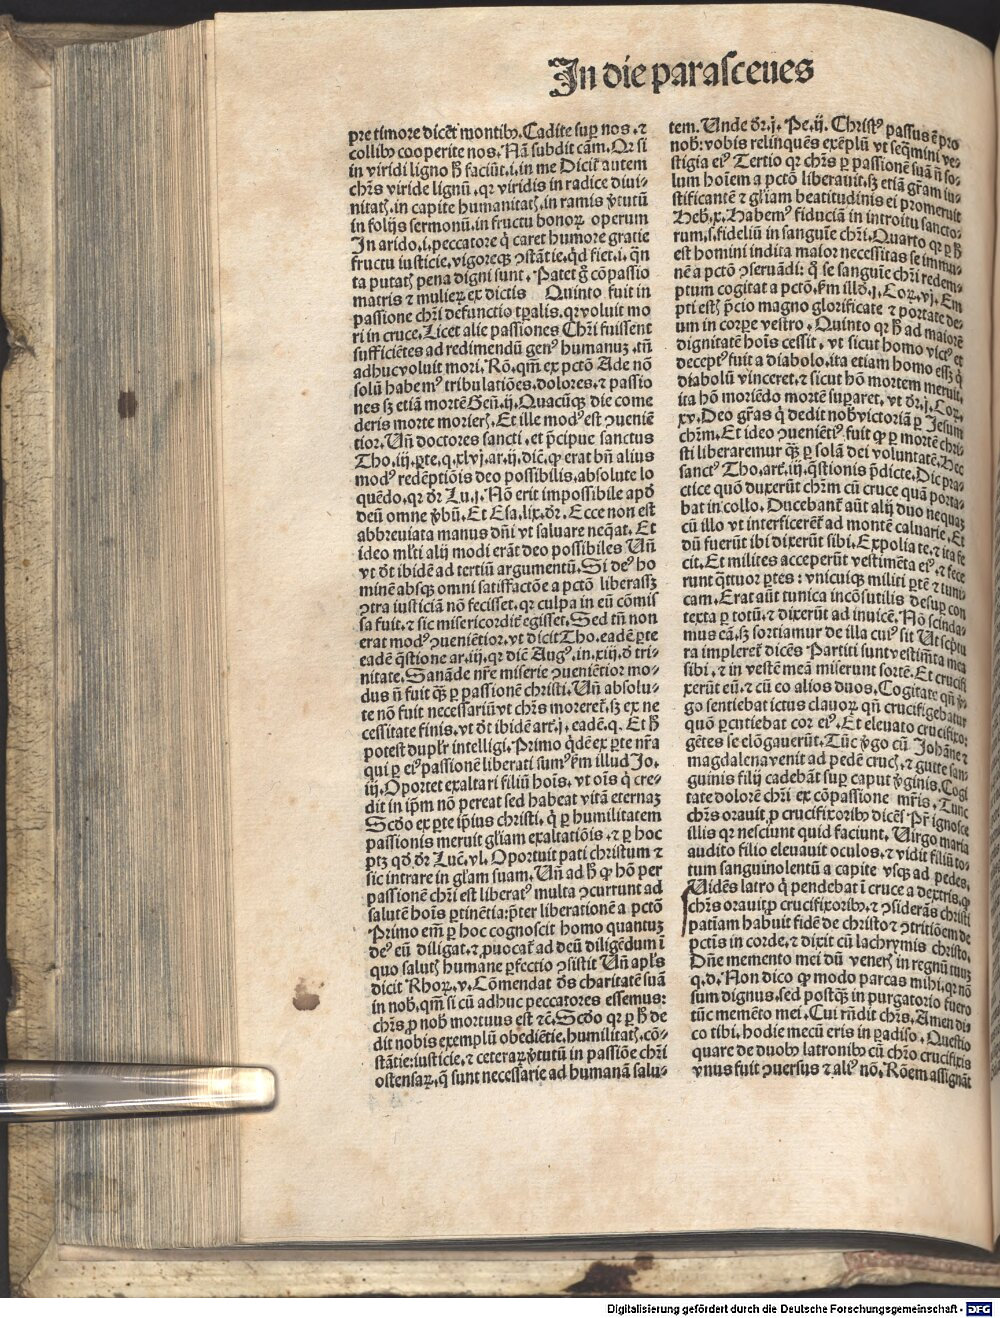 In die parasceues
pre timore dicēt montibꝰ. Cadite suꝑ nos. ⁊
collibꝰ cooperite nos. Nā subdit cām. Qr si
in viridi ligno h̄ faciūt. i. in me Dicit̄ autem
chr̄s viride lignū. qr viridis in radice diui-
nitatꝭ. in capite humanitatꝭ. in ramis v̓tutū
in folijs sermonū. in fructu bonoꝝ operum
In arido. i. peccatore q̇ caret humore gratie
fructu iusticie. vigoreqꝫ ꝯstātie. qd̄ fiet. i. qn̄
ta putatꝭ pena digni sunt. Patet g̊ cōpassio
matris ⁊ mulieꝝ ex dictis Quinto fuit in
passione chr̄i defunctio tꝑalis. qr voluit mo
ri in cruce. Licet alie passiones Chr̄i fuissent
sufficiētes ad redimendū genꝰ humanuꝫ. tn̄
adhuc voluit mori. Rō. qm̄ ex pctō Ade nō
solū habemꝰ tribulatiōes. dolores. ⁊ passio
nes sꝫ etiā mortē Gen̄. ij. Quacūqꝫ die come
deris morte morierꝭ. Et ille modꝰ est ꝯueniē
tior. Un̄ doctores sancti. et p̄cipue sanctus
Tho. iij. ꝑte. q. xlvj. ar. ij. dic̄. ꝙ erat bn̄ alius
modꝰ redēptiōis deo possibilis. absolute lo
quēdo. qr dr̄ Lu. j. Nō erit impossibile apd̄
deū omne v̓bū. Et Esa. lix. dr̄. Ecce non est
abbreuiata manus dn̄i vt saluare neq̄at. Et
ideo ml̄ti alij modi erāt deo possibiles Un̄
vt dr̄ ibidē ad tertiū argumentū. Si deꝰ ho
minē absqꝫ omni satisfactōe a pctō liberassꝫ
ꝯtra iusticiā nō fecisset. qr culpa in eū cōmis
sa fuit. ⁊ sic misericordit̄ egisset. Sed tn̄ non
erat modꝰ ꝯueniētior. vt dicit Tho. eadē ꝑte
eadē q̄stione ar. iij. qr dic̄ Augꝰ. in. xiij. d̄ tri-
nitate. Sanāde nr̄e miserie ꝯueniētior mo-
dus n̄ fuit q̄ꝫ ꝑ passionē christi. Un̄ absolu-
te nō fuit necessariū vt chr̄s morerer̄. sꝫ ex ne
cessitate finis. vt dr̄ ibidē art̄. j. eadē. q. Et h̄
potest duplr̄ intelligi. Primo q̇dē ex ꝑte nr̄a
qui ꝑ eiꝰ passionē liberati sumꝰ ẜm illud Jo.
iij. Oportet exaltari filiū hoīs. vt oīs q̇ cre-
dit in ip̄m nō pereat sed habeat vitā eternaꝫ
Scd̄o ex ꝑte ip̄ius christi. q̇ ꝑ humilitatem
passionis meruit gl̄iam exaltatiōis. ⁊ ꝑ hoc
ptꝫ qd̄ dr̄ Luc̄. vl. Oportuit pati christum ⁊
sic intrare in gl̄am suam. Un̄ ad h̄ ꝙ hō per
passionē chr̄i est liberatꝰ multa ꝯcurrunt ad
salutē hoīs ꝑtinētia: p̄ter liberationē a pctō
Primo em̄ ꝑ hoc cognoscit homo quantuꝫ
deꝰ eū diligat. ⁊ ꝓuocat̄ ad deū diligēdum ī
quo salutꝭ humane ꝑfectio ꝯsistit Un̄ apl̄s
dicit Rhoꝝ. v. Cōmendat ds̄ charitatē suā
in nob̄. qm̄ si cū adhuc peccatores essemus:
chr̄s ꝓ nob̄ mortuus est ⁊c̄. Scd̄o qr ꝑ h̄ de
dit nobis exemplū obediētie. humilitatꝭ. cō-
stātie: iusticie. ⁊ ceteraꝝ v̓tutū in passiōe chr̄i
ostensaꝝ. q̄ sunt necessarie ad humanā salu-
tem. Unde dr̄. j. Pe. ij. Christꝰ passus ē pro
nob̄: vobis relinquēs exēplū vt seq̄mini ve-
stigia eiꝰ Tertio qr chr̄s ꝑ passionē suā n̄ so-
lum hoīem a pctō liberauit. sꝫ etiā gr̄am iu-
stificantē ⁊ gl̄iam beatitudinis ei promeruit
Heb̄. x. Habemꝰ fiduciā in introitu sancto-
rum. s. fideliū in sanguīe chr̄i. Quarto qr ꝑ h̄
est homini indita maior necessitas se immu-
nē a pctō ꝯseruādi: q̇ se sanguīe chr̄i redem-
ptum cogitat a pctō. ẜm illd̄. j. Coꝝ. vj. Em
pti estꝭ p̄cio magno glorificate ⁊ portate de-
um in corꝑe vestro. Quinto qr h̄ ad maiorē
dignitatē hoīs cessit. vt sicut homo victꝰ et
deceptꝰ fuit a diabolo. ita etiam homo essꝫ q̇
diabolū vinceret. ⁊ sicut hō mortem meruit.
ita hō moriēdo mortē suꝑaret. vt dr̄. j. Coꝝ.
xv. Deo gr̄as q̇ dedit nob̄ victoriā ꝑ Jesum
chr̄m. Et ideo ꝯueniētiꝰ fuit ꝙ ꝑ mortē chri-
sti liberaremur q̄ꝫ ꝑ solā dei voluntatē. Hec
sanctꝰ Tho. art̄. iij. q̄stionis p̄dicte. Dic pra-
ctice quō duxerūt chr̄m cū cruce quā porta-
bat in collo. Ducebant̄ aūt alij duo nequaꝫ
cū illo vt interficerēt̄ ad montē caluarie. Et
dū fuerūt ibi dixerūt sibi. Expolia te. ⁊ ita fe
cit. Et milites acceperūt vestimēta eiꝰ. ⁊ fece
runt q̄ttuor ꝑtes: vnicuiqꝫ militi ꝑtē ⁊ tuni-
cam. Erat aūt tunica incōsutilis desuꝑ con
texta ꝑ totū. ⁊ dixerūt ad inuicē. Nō scinda-
mus eā. sꝫ sortiamur de illa cuiꝰ sit Ut sc̄ptu
ra impleret̄ dicēs Partiti sunt vestim̄ta mea
sibi. ⁊ in vestē meā miserunt sortē. Et crucifi
xerūt eū. ⁊ cū eo alios duos. Cogitate qn̄ v̓-
go sentiebat ictus clauoꝝ qn̄ crucifigebatur
quō ꝑcutiebat cor eiꝰ. Et eleuato crucifixo:
gētes se elōgauerūt. Tūc v̓go cū Johāne ⁊
magdalena venit ad pedē crucꝭ. ⁊ gutte san-
guinis filij cadebāt suꝑ caput v̓ginis. Cogi
tate dolorē chr̄i ex cōpassione mr̄is. Tunc
chr̄s orauit ꝓ crucifixoribꝰ dicēs Pr̄ ignosce
illis qr nesciunt quid faciunt. Uirgo maria
audito filio eleuauit oculos. ⁊ vidit filiū to-
tum sanguinolentū a capite vsqꝫ ad pedes.
Uidēs latro q̇ pendebat ī cruce a dextris. ꝙ
chr̄s orauit ꝓ crucifixoribꝰ. ⁊ ꝯsiderās christi
patiam habuit fidē de christo ⁊ ꝯtritiōem de
pctīs in corde. ⁊ dixit cū lachrymis christo.
Dn̄e memento mei dū venerꝭ in regnū tuuꝫ
q. d. Non dico ꝙ modo parcas mihi. qr nō
sum dignus. sed postq̄ꝫ in purgatorio fuero
tūc memēto mei. Cui rn̄dit chr̄s. Amen di-
co tibi. hodie mecū eris in ꝑadiso. Questio
quare de duobꝰ latronibꝰ cū chr̄o crucifixis
vnus fuit ꝯuersus ⁊ aliꝰ nō. Rōem assignāt
Digitalisierung gefördert durch die Deutsche Forschungsgemeinschaft - DFG